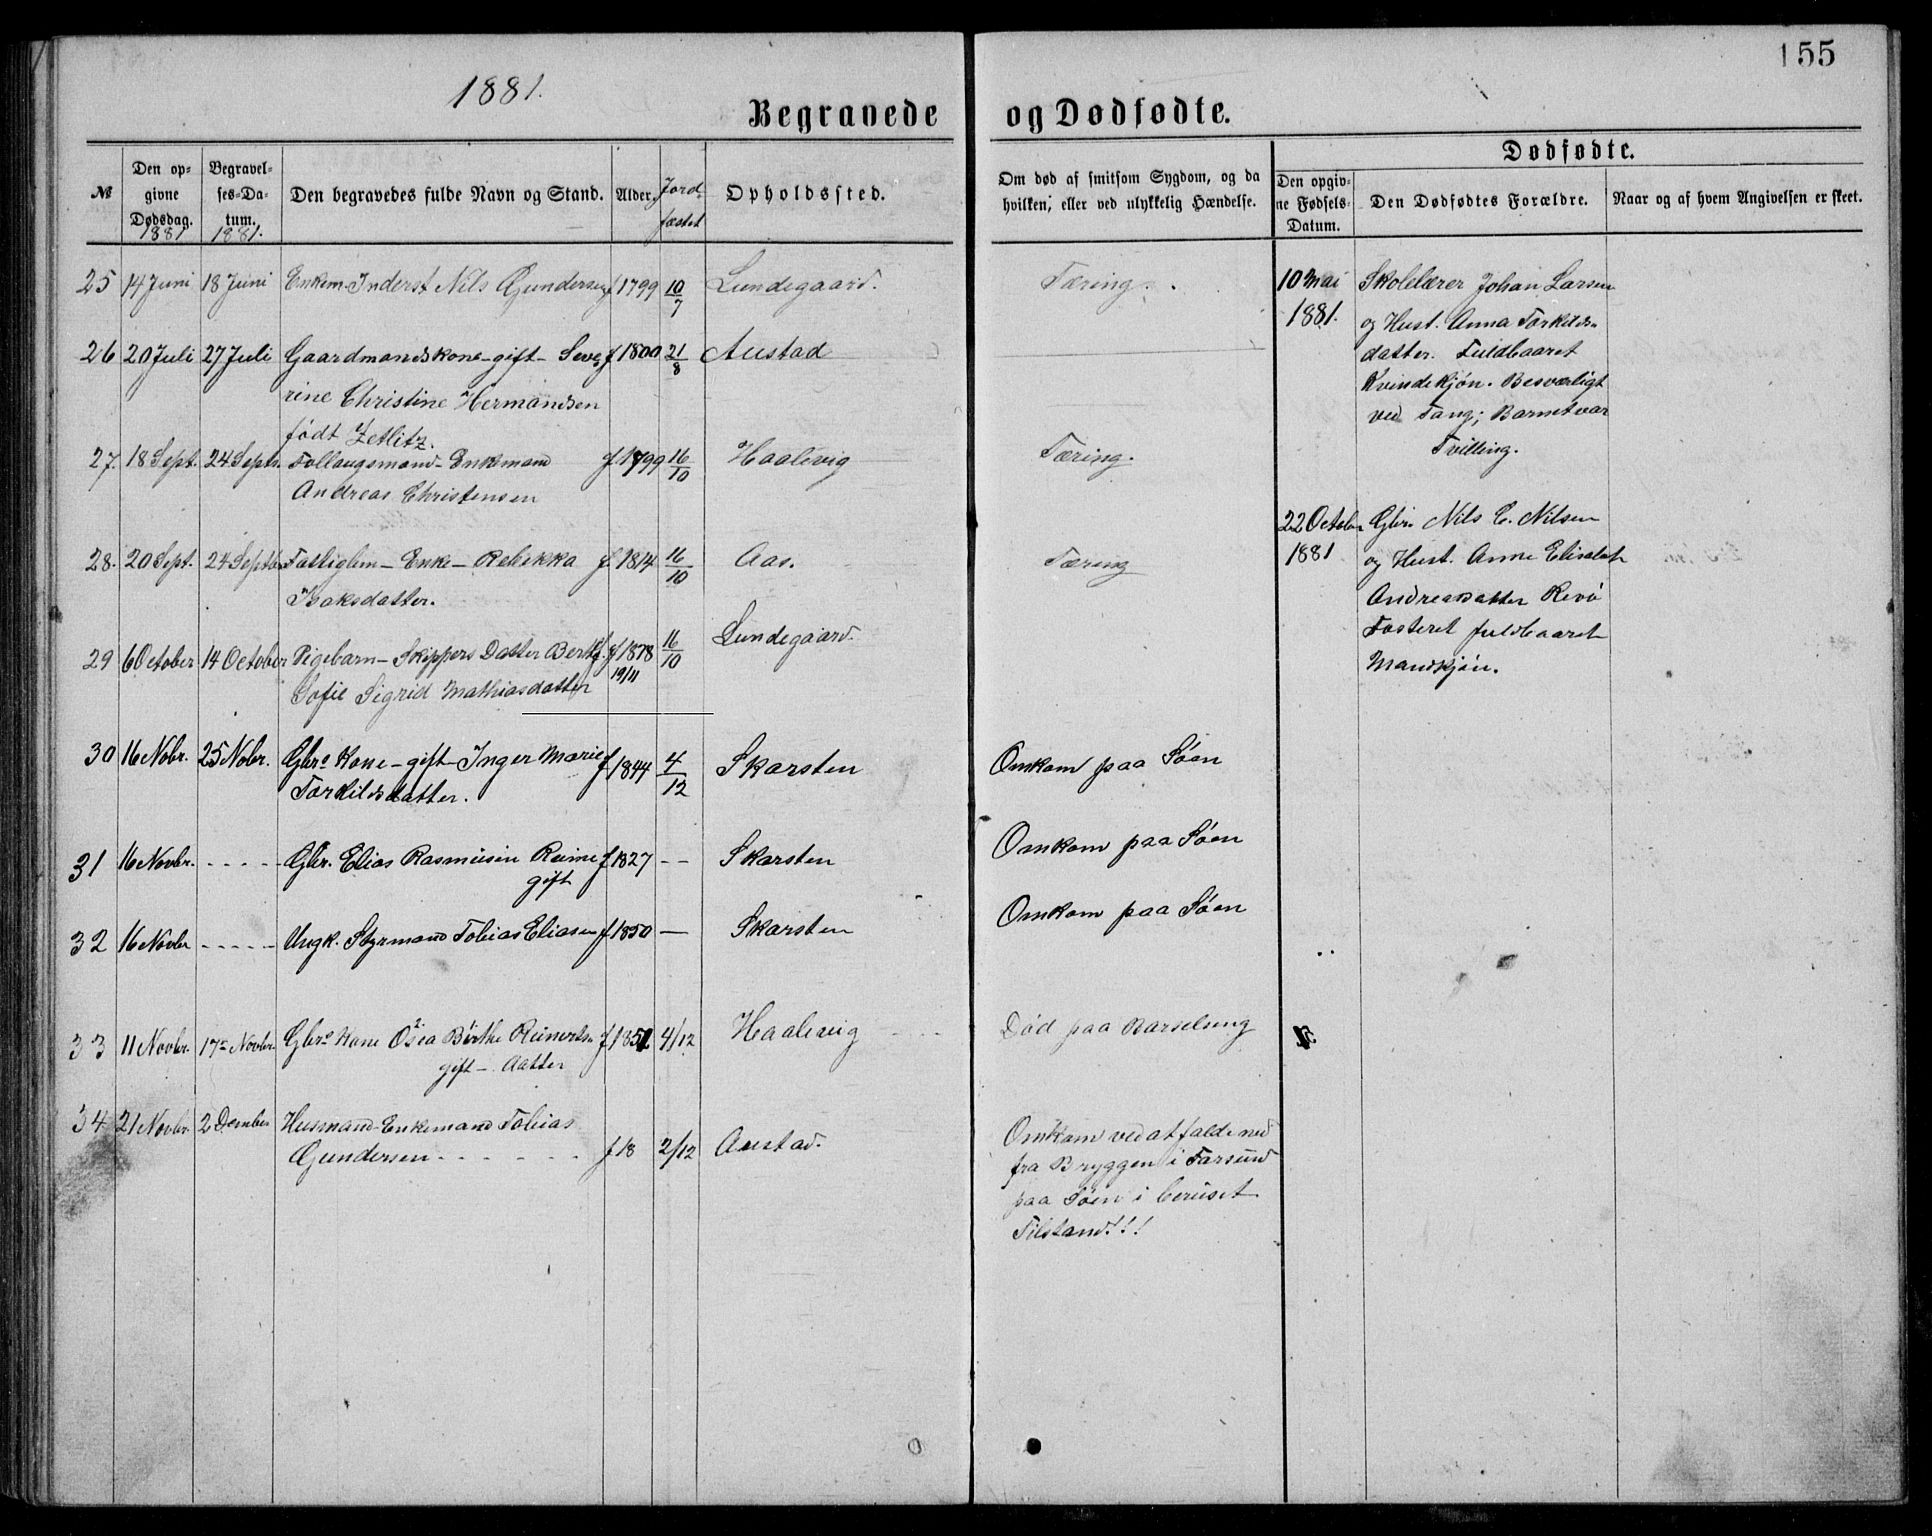 155
1881.
Begravede og Dødfødte.
Dødfødte.
№
Den opgivne Dødsdag. 1881
Begravelses-Datum. 1881.
Den begravedes fulde Navn og Stand.
Alder.
Jordfæstet
Opholdssted.
Om død af smitsom Sygdom, og da hvilken, eller ved ulykkelig Hændelse.
Den opgivne Fødsels-Datum.
Den Dødfødtes Forældre.
Naar og af hvem Angivelsen er skeet.
25 14 Juni 18 Juni Enkem. Inderst Nils Gundersen f 1799 10/7 Lundegaard. Tæring.
26 20 Juli 27 Juli Gaardmandskone - gift - Seve- f 1800 21/8 Austad
rine Christine Hermandsen
født Zetlitz.
27. 18 Sept. 24 Septr. Follaugsmand - Enkmand f 1799 16/10 Haalevig Tæring.
Andreas Christensen
28. 20 Sept. 24 Septbr Fattiglem - Enke - Rebekka f 1814 16/10 Aas. Tæring
Isaksdatter.
29 6 October 14 October Pigebarn - Skippers Datter f 1878 19/11 16/10 Lundegaard.
Sofie Sigrid Mathiasdatter
30 16 Nobr. 25 Nobr. Gbrs Kone - gift - Inger Marie f 1844 4/12 Skarsten Omkom paa Søen
Torkildsdatter.
31 16 Novbr. - - - - - Gbr. Elias Rasmusen Reime f 1827 - - Skarsten Omkom paa Søen
gift
32 16 Novbr - - - - - Ungk. Styrmand Tobias Eliasen f 1850 — Skarsten Omkom paa Søen
33 11 Novbr. 17 Novbr. Gbrs Kone Osea Børthe Reinerts- f 1851 4/12 Haalevig Død paa Barselseng
gift - datter
34 21 Novbr. 2 Dcember Husmand - Enkemand Tobias
Gundersen - - - - - - f 18 2/12 Austad.
Omkom ved at falde ned
fra Bryggen i Farsund
paa Søen i beruset
Tilstand!!!
10 Mai Skolelærer Johan Larsen
1881. og Hust. Anna Torkilds-
datter. Fuldbaaret
Kvindekjøn. Besværligt
ved Tang; Barnet var
Tvilling.
22 October Gbr. Nils E. Nilsen
1881 og Hust. Anne Elisabet
Andreasdatter Revø
Fosteret fuldbaaret
Mandkjøn.